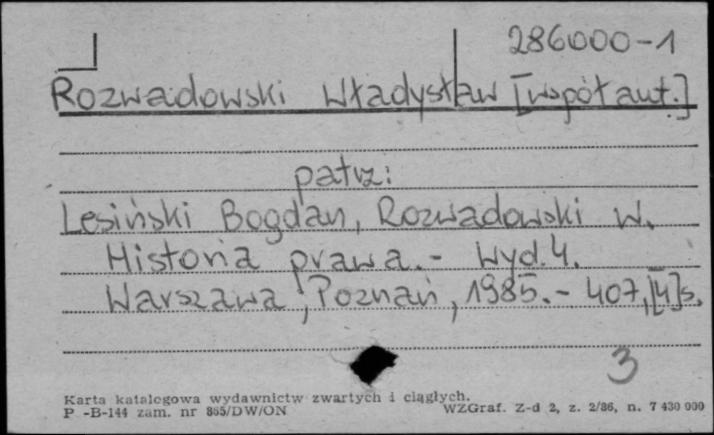 286000-1
Rozwadowski Władysław [współaut.]
patrz:
Lesiński Bogdan, Rozwadowski W.
Historia prawa.- Wyd.4.
Warszawa ; Poznań, 1985.- 407,[4]s.
3
Karta katalogowa wydawnictw zwartych i ciągłych.
P -B-144 zam. nr 865/DW/ON WZGraf. Z-d 2, z. 2/86, n. 7 430 000